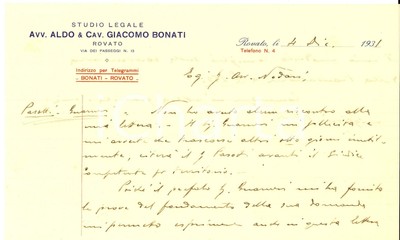 STUDIO LEGALE
AVV. ALDO & CAV. GIACOMO BONATI
ROVATO
VIA DEI PASSEGGI N. 12
Rovato, li 4 Dic. 1931
Telefono N. 4
Indirizzo per Telegrammi
BONATI - ROVATO
Eg. G. Avv. Nodari
Paroli - Guarneri. Non ho avuto alcun riscontro alla
mia lettera. Il G. Guarneri mi sollicita e
mi avverte che trascorsi altri otto giorni inutil-
mente, citerà il G. Paroli avanti il Giudice
competente per territorio.
Poiché il prefato G. Guarneri mi ha fornito
le prove del fondamento della sua domanda
mi permetto esprimere anche in questa lettera